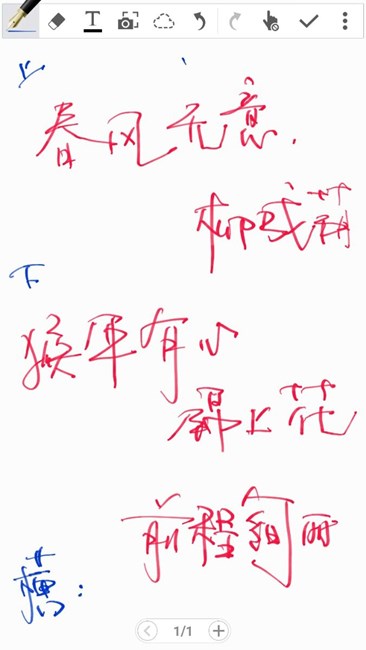 上
春风无意,
柳成荫
下
猴年有心
锦上花
前程绚丽
横:
1/1